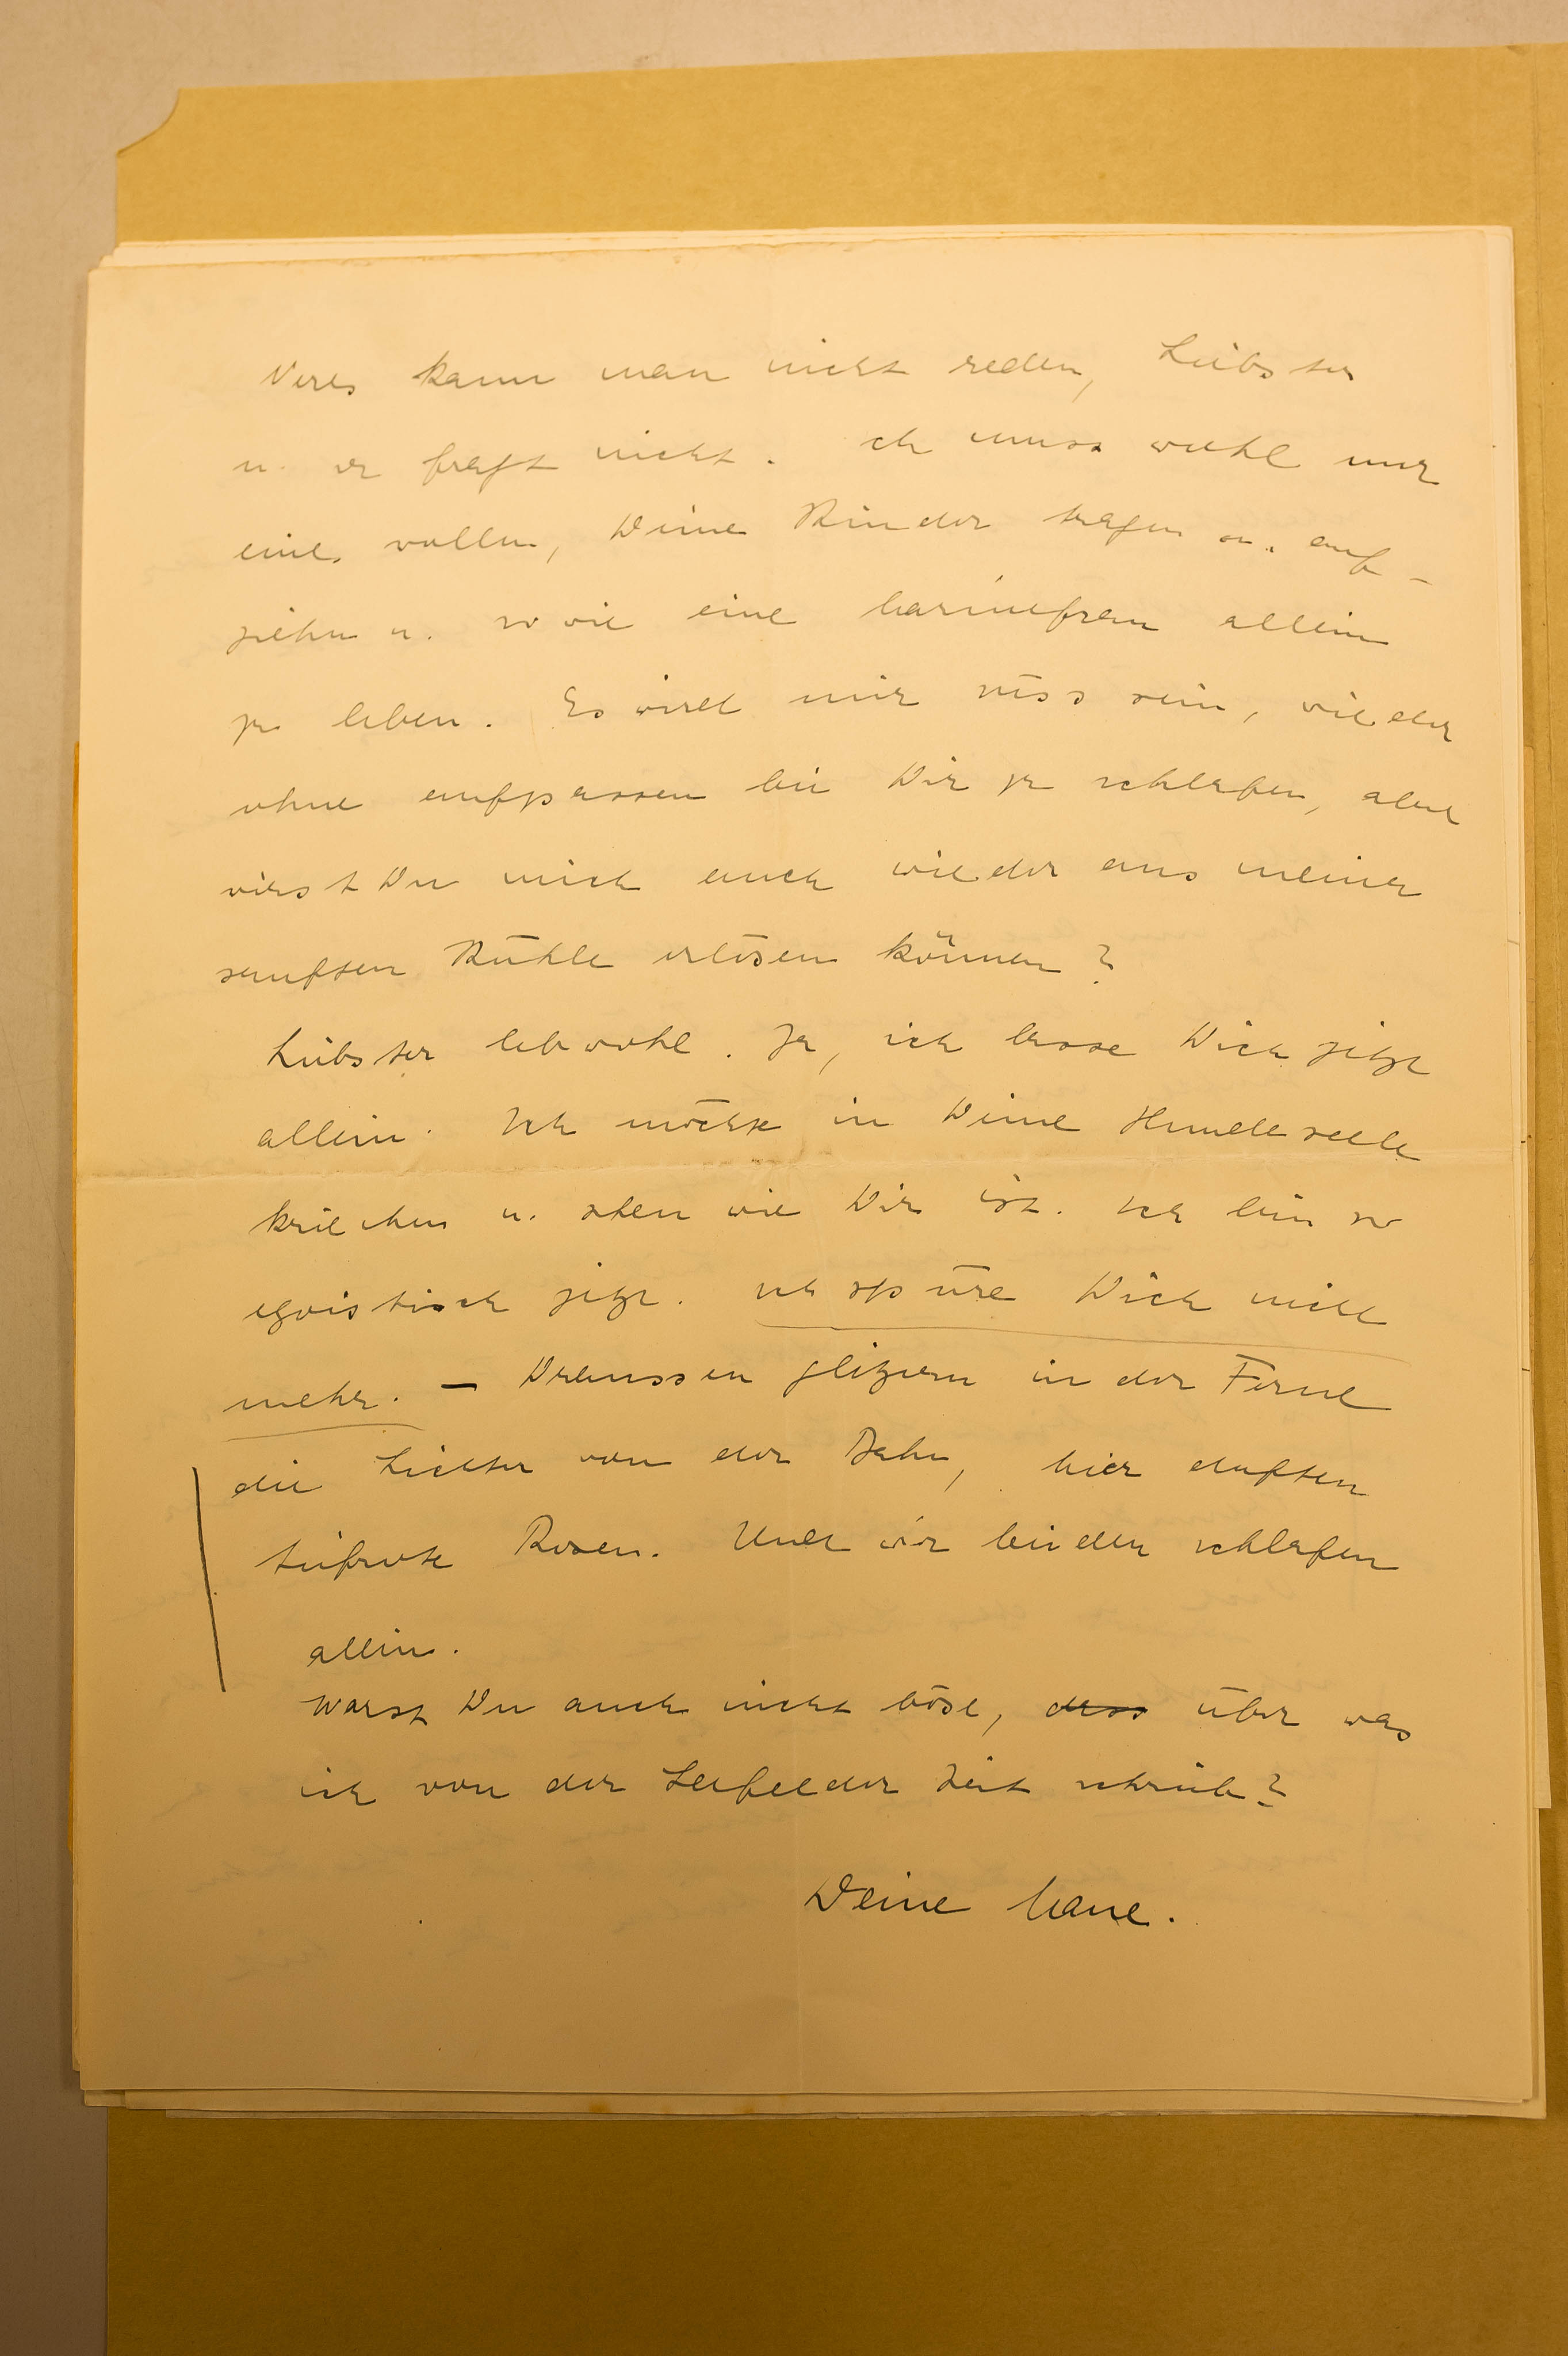 kann man nicht reden, Liebster
u. er fragt nicht. Ich muss wohl nur
eines wollen, Deine Kinder tragen u. auf-
ziehn u. so wie eine Marinefrau allein
zu leben. Es wird mir süss sein, wieder
ohne aufpassen bei Dir zu schlafen, aber
wirst Du mich auch wieder aus meiner
sanften Kühle erlösen können?
Liebster lebwohl. Ja, ich lasse Dich jetzt
allein. Ich möchte in Deine Hundeseele
kriechen u. sehen wie Dir ist. Ich bin so
egoistisch jetzt. Ich spüre Dich nicht
mehr. – Draussen glitzern in der Ferne
die Lichter von der Bahn, hier duften
tiefrote Rosen. Und wir beiden schlafen
allein.
Warst Du auch nicht böse, dass über was
ich von der Zeit schrieb?
Deine